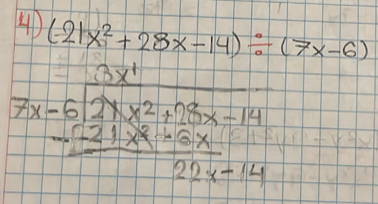 4) (-21x² + 28x - 14) ÷ (7x - 6)
3x¹
7x - 6 21x² + 28x - 14
- 21x² + 6x
22x - 14